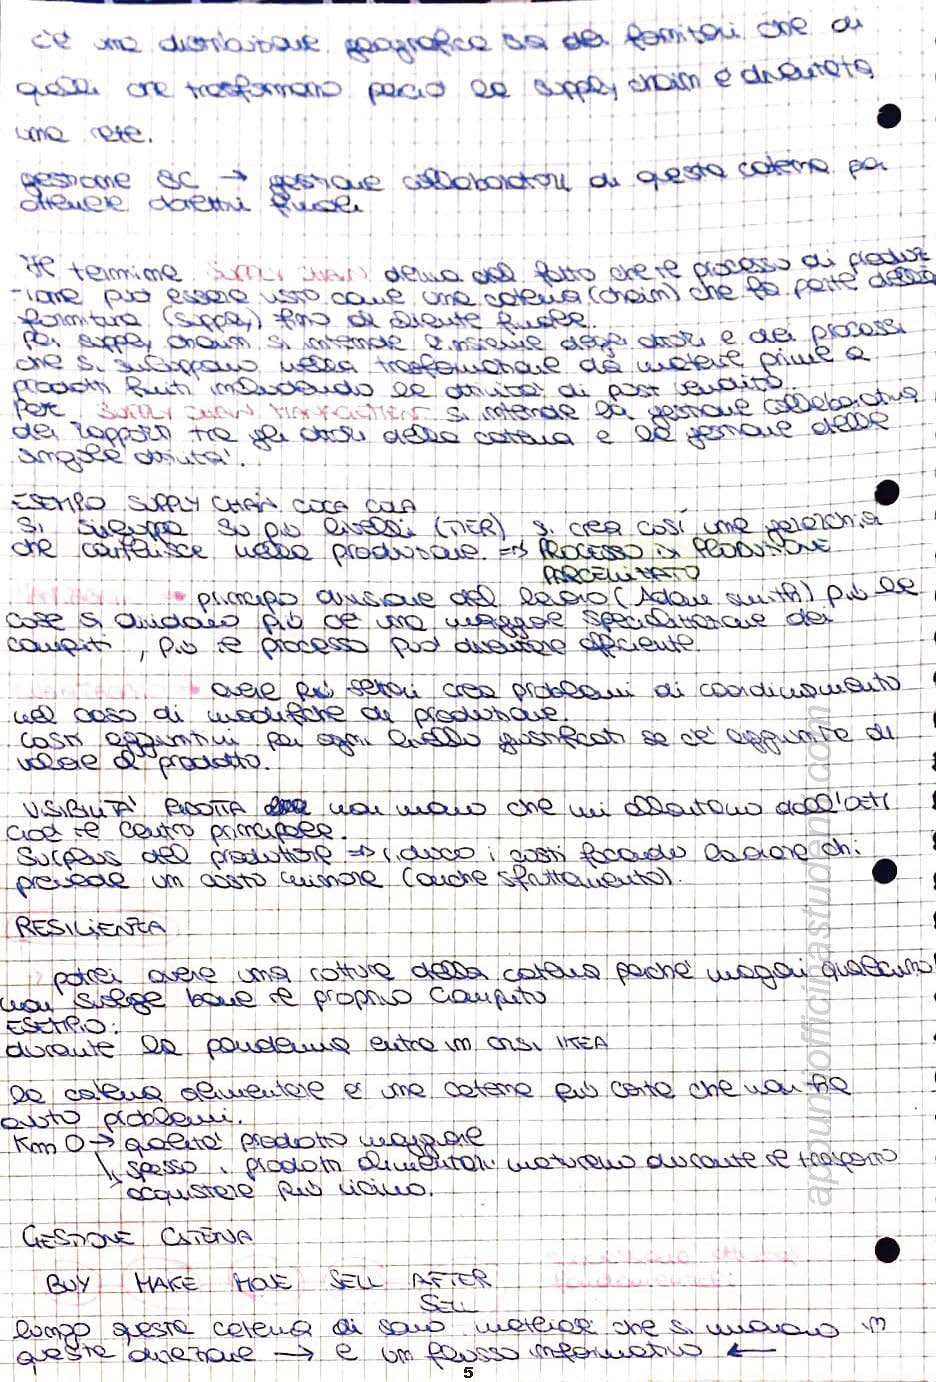 c'è una distribuzione geografica sia dei fornitori che di
quelli che trasformano perciò la supply chain è diventata
una rete.
gestione SC → gestione collaborativa di questa catena per
ottenere obiettivi finali
Il termine SUPPLY CHAIN deriva dal fatto che il processo di produz
-ione può essere visto come una catena (chain) che fa parte dalla
fornitura (supply) fino al cliente finale.
Per supply chain si intende l'insieme degli attori e dei processi
che si sviluppano nella trasformazione da materie prime a
prodotti finiti includendo le attività di post vendita.
Per SUPPLY CHAIN MANAGEMENT si intende la gestione collaborativa
dei rapporti tra gli attori della catena e la gestione delle
singole attività.
ESEMPIO SUPPLY CHAIN COCA COLA
Si sviluppa su più livelli (TIER) si crea così una gerarchia
che contribuisce nella produzione. => PROCESSO DI PRODUZIONE
PARCELLIZZATO
• principio divisione del lavoro (Adam Smith) più le
cose si dividono più c'è una maggiore specializzazione dei
compiti, più il processo può diventare efficiente.
• avere più settori crea problemi di coordinamento
nel caso di modifiche di produzione.
Costi aggiuntivi per ogni livello giustificati se c'è aggiunta di
valore al prodotto.
VISIBILITA' RIDOTTA man mano che mi allontano dall'atti
cioè il centro principale.
Surplus del produttore => riduco i costi facendo lavorare chi
prevede un costo minore (anche sfruttamento).
RESILIENZA
potrei avere una rottura della catena perché magari qualcuno
non svolge bene il proprio compito
ESEMPIO:
durante la pandemia entra in crisi IKEA
la catena alimentare è una catena più corta che non ha
avuto problemi.
Km 0 → qualità prodotto maggiore
↳ spesso i prodotti alimentari maturano durante il trasporto
acquistare più vicino.
GESTIONE CATENA
BUY MAKE MOVE SELL AFTER
SELL
lungo questa catena ci sono materiali che si muovono in
questa direzione → e un flusso informativo ←
5
appuntiofficinastudenti.com